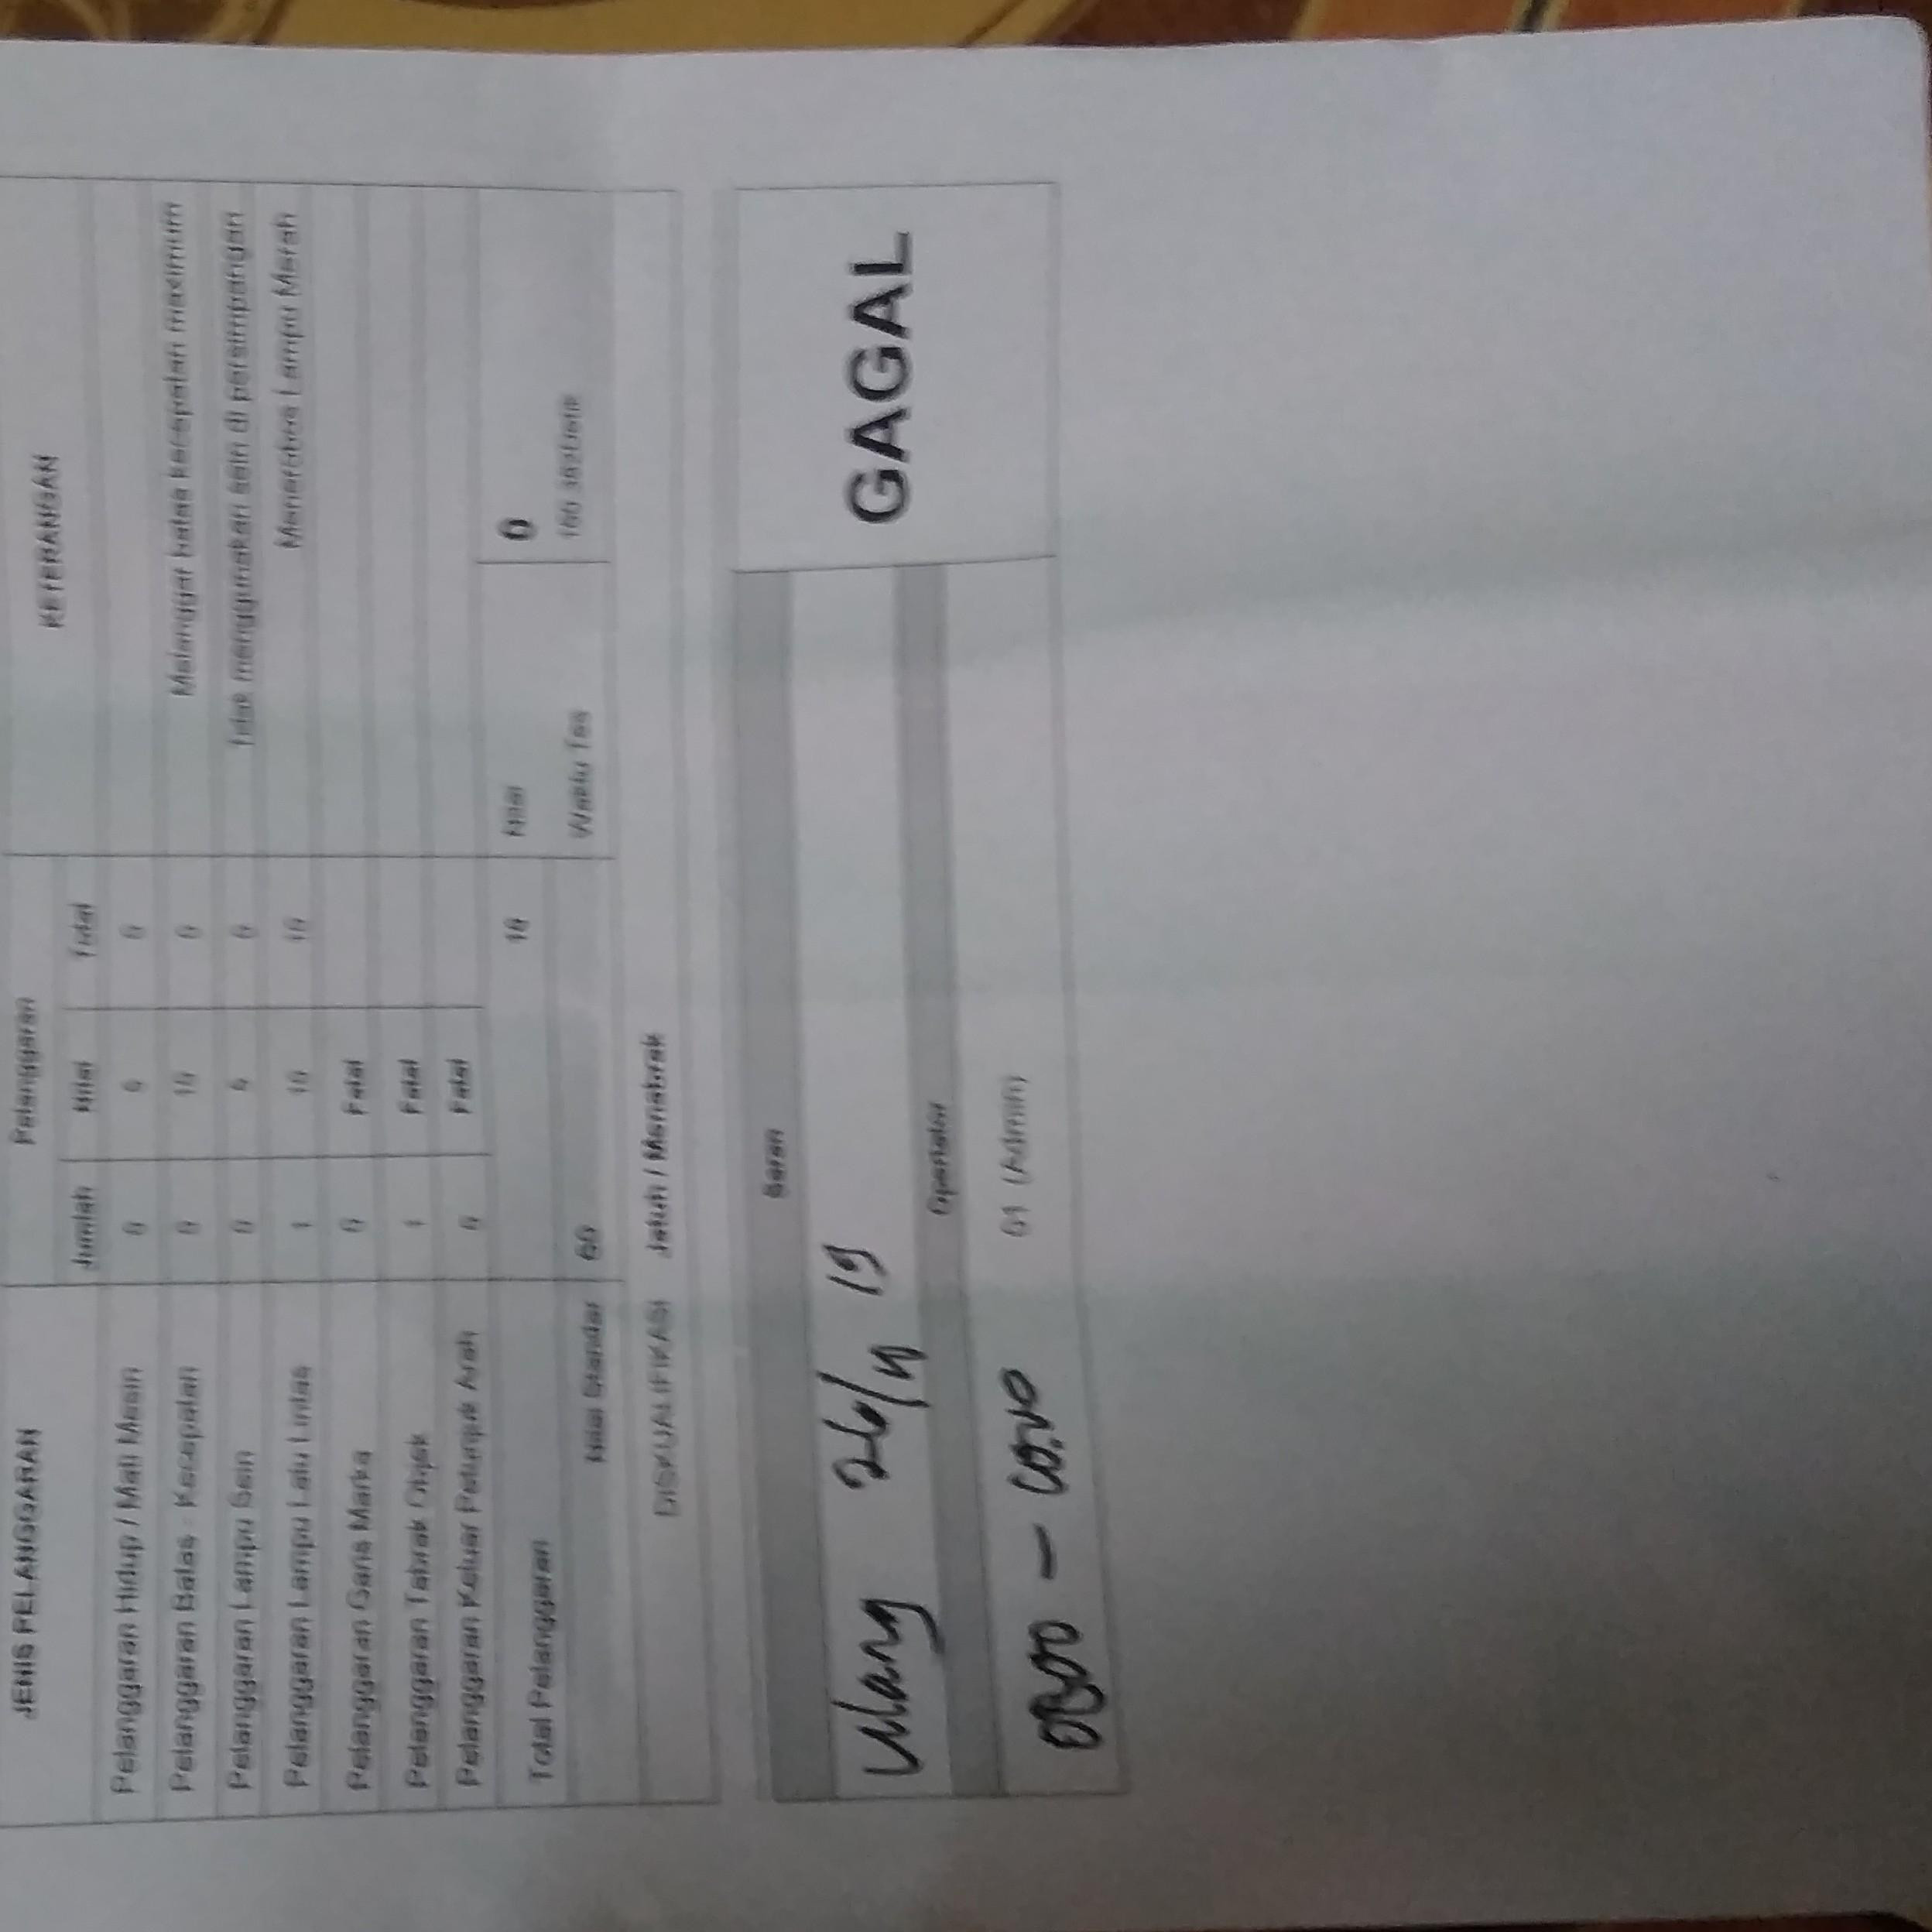 JENIS PELANGGARAN Pelanggaran KETERANGAN
Jumlah Nilai Total
Pelanggaran Hidup / Mati Mesin 0 0
Pelanggaran Batas - Kecepatan 0 10 0 Melanggar batas kecepatan maximum
Pelanggaran Lampu Sein 0 0 Tidak menggunakan sein di persimpangan
Pelanggaran Lampu Lalu Lintas 1 10 10 Menerobos Lampu Merah
Pelanggaran Garis Marka 0 Fatal
Pelanggaran Tabrak Objek 1 Fatal
Pelanggaran Keluar Petunjuk Arah 0 Fatal
Total Pelanggaran 10 Nilai 0
Nilai Standar 60 Waktu Tes
DISKUALIFIKASI Jatuh / Menabrak
Saran
GAGAL
Ulang 26/4 19
Operator
01 (Admin)